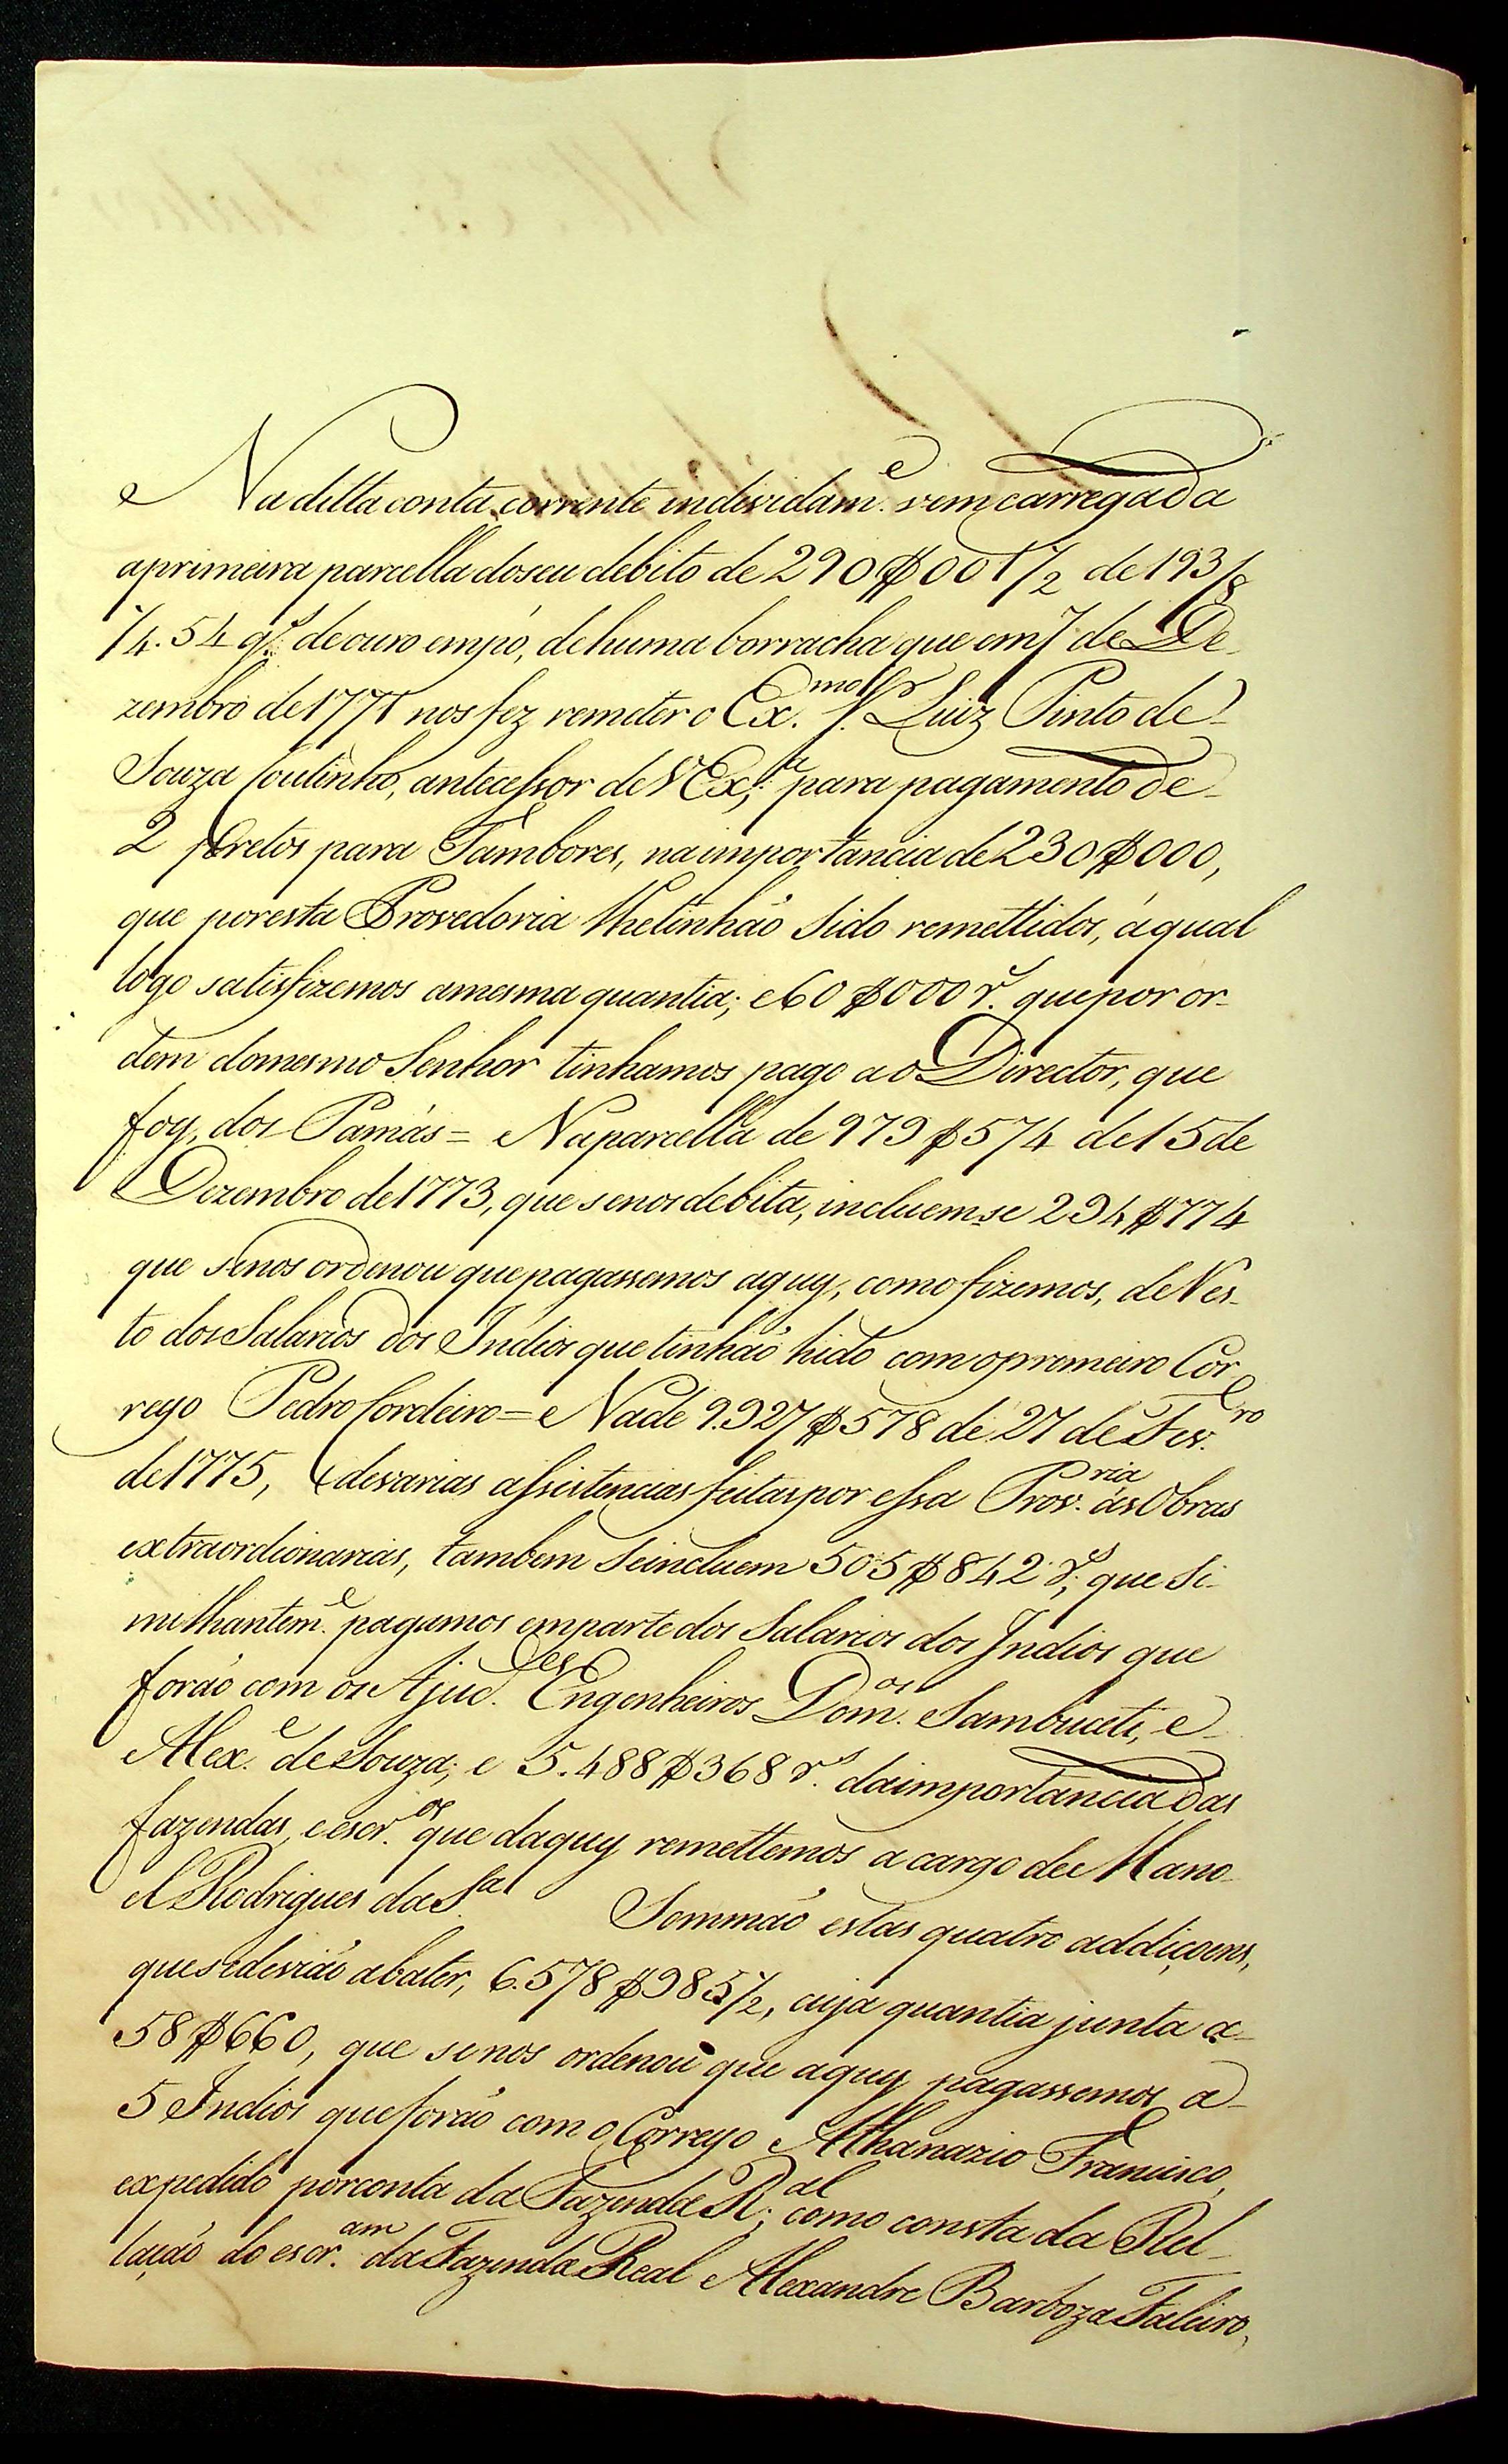 Na ditta conta corrente individam.e vem carregada
aprimeira parcella doseu debito de 290$001½ de 193/8
¼.54 g.s de ouro em pó, de huma borracha que em 7 de De-
zembro de 1771 nos fez remeter o Ex.mo S.r Luiz Pinto de
Souza Coutinho, antecessor de VEx.ª, para pagamento de
2 Pretos para Tambores, na importancia de 230$000,
que por esta Provedoria lhe tinhão sido remettidos, á qual
logo satisfizemos a mesma quantia; e 60$000 r.s que por or-
dem do mesmo Senhor tinhamos pago ao Director, que
foy, dos Pamás = Na parcella de 979$574 de 15 de
Dezembro de 1773, que se nos debita, incluem-se 234$774
que se nos ordenou que pagassemos aquy, como fizemos, de Res-
to dos Salarios dos Indios que tinhão hido com o promeiro Cor-
reyo Pedro Cordeiro = Na de 9.927$578 de 27 de Fev.ro
de 1775, de varias assistencias feitas por essa Prov.ria ás Obras
extraordionarias, tambem se incluem 505$842 r.s, que Si-
milhantem.e pagamos em parte dos Salarios dos Indios que
forão com os Ajud.es Engenheiros Dom.os Sambuceti, e
Alex.e de Souza; e 5.488$368 r.s da importancia das
fazendas, e escr.os que daquy remettemos a cargo de Mano-
el Rodrigues da S.a Sommão estas quatro addiçoens,
que se devião abater, 6.578$985½, cuja quantia junta a
58$660, que se nos ordenou que aquy pagassemos a
5 Indios que forão com o Correyo Athanazio Francisco,
expedido por conta da Fazenda R.al, como consta da Rel-
lação do escr.am da Fazenda Real Alexandre Barboza Faleiro,